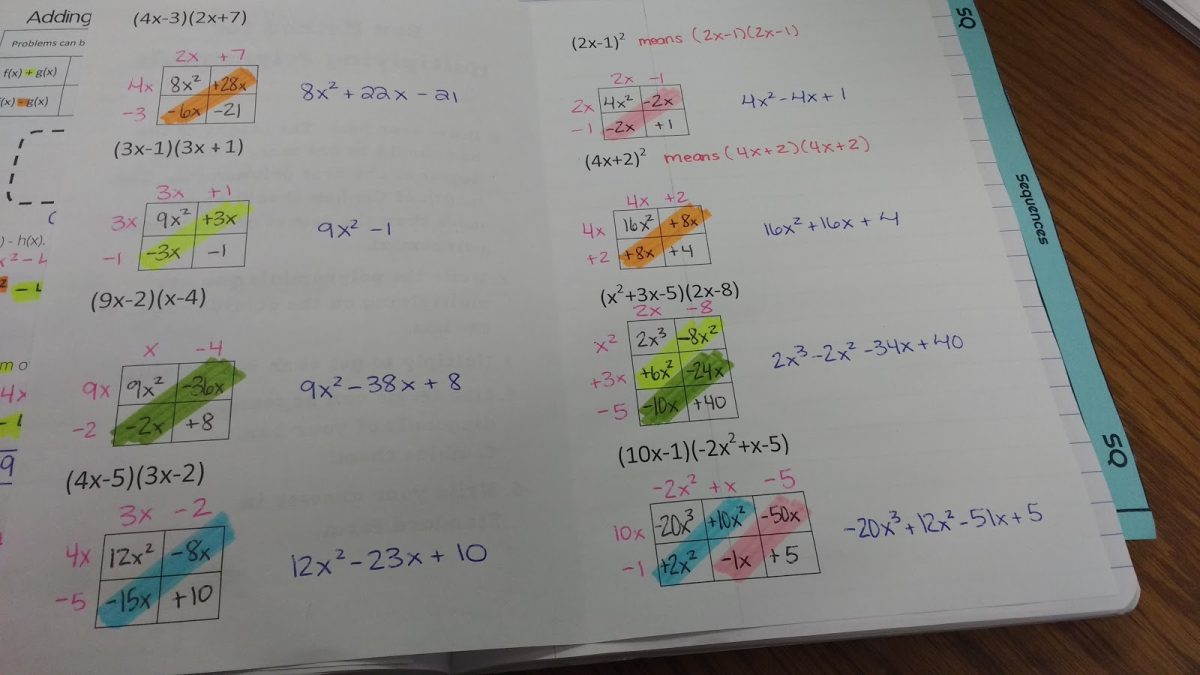 Adding
Problems can b
f(x) + g(x)
f(x) - g(x)
) - h(x).
x² - 4
² - 4
m o
4x
- 4
9
(4x-3)(2x+7)
2x +7
4x 8x² +28x
-3 -6x -21
8x² + 22x - 21
(3x-1)(3x+1)
3x +1
3x 9x² +3x
-1 -3x -1
9x² - 1
(9x-2)(x-4)
x -4
9x 9x² -36x
-2 -2x +8
9x² - 38x + 8
(4x-5)(3x-2)
3x -2
4x 12x² -8x
-5 -15x +10
12x² - 23x + 10
(2x-1)² means (2x-1)(2x-1)
2x -1
2x 4x² -2x
-1 -2x +1
4x² - 4x + 1
(4x+2)² means (4x+2)(4x+2)
4x +2
4x 16x² +8x
+2 +8x +4
16x² + 16x + 4
(x²+3x-5)(2x-8)
2x -8
x² 2x³ -8x²
+3x +6x² -24x
-5 -10x +40
2x³ - 2x² - 34x + 40
(10x-1)(-2x²+x-5)
-2x² +x -5
10x -20x³ +10x² -50x
-1 +2x² -1x +5
-20x³ + 12x² - 51x + 5
SQ
Sequences
SQ